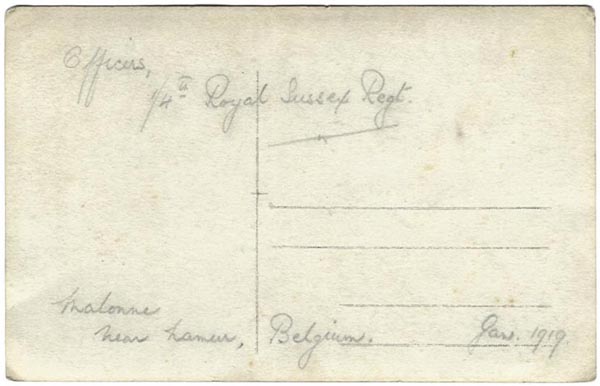 Officers,
1/4th Royal Sussex Regt.
Malonne
near Namur, Belgium. Jan. 1919.